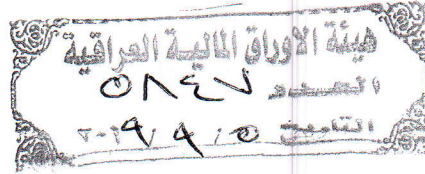 هيئة الاوراق المالية العراقية
العـــدد ٥٨٤٧
التاريخ